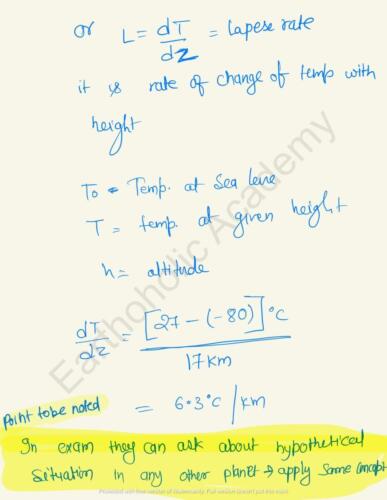 or L = dT/dz = Lapese rate
it is rate of change of temp with
height
To = Temp. at Sea leve
T = temp. at given height
h = altitude
dT/dz = [27 - (-80)]°C / 17 km
= 6.3°C / km
Point to be noted
In exam they can ask about hypothetical
Situation in any other planet → apply same concept
Earthoholic Academy